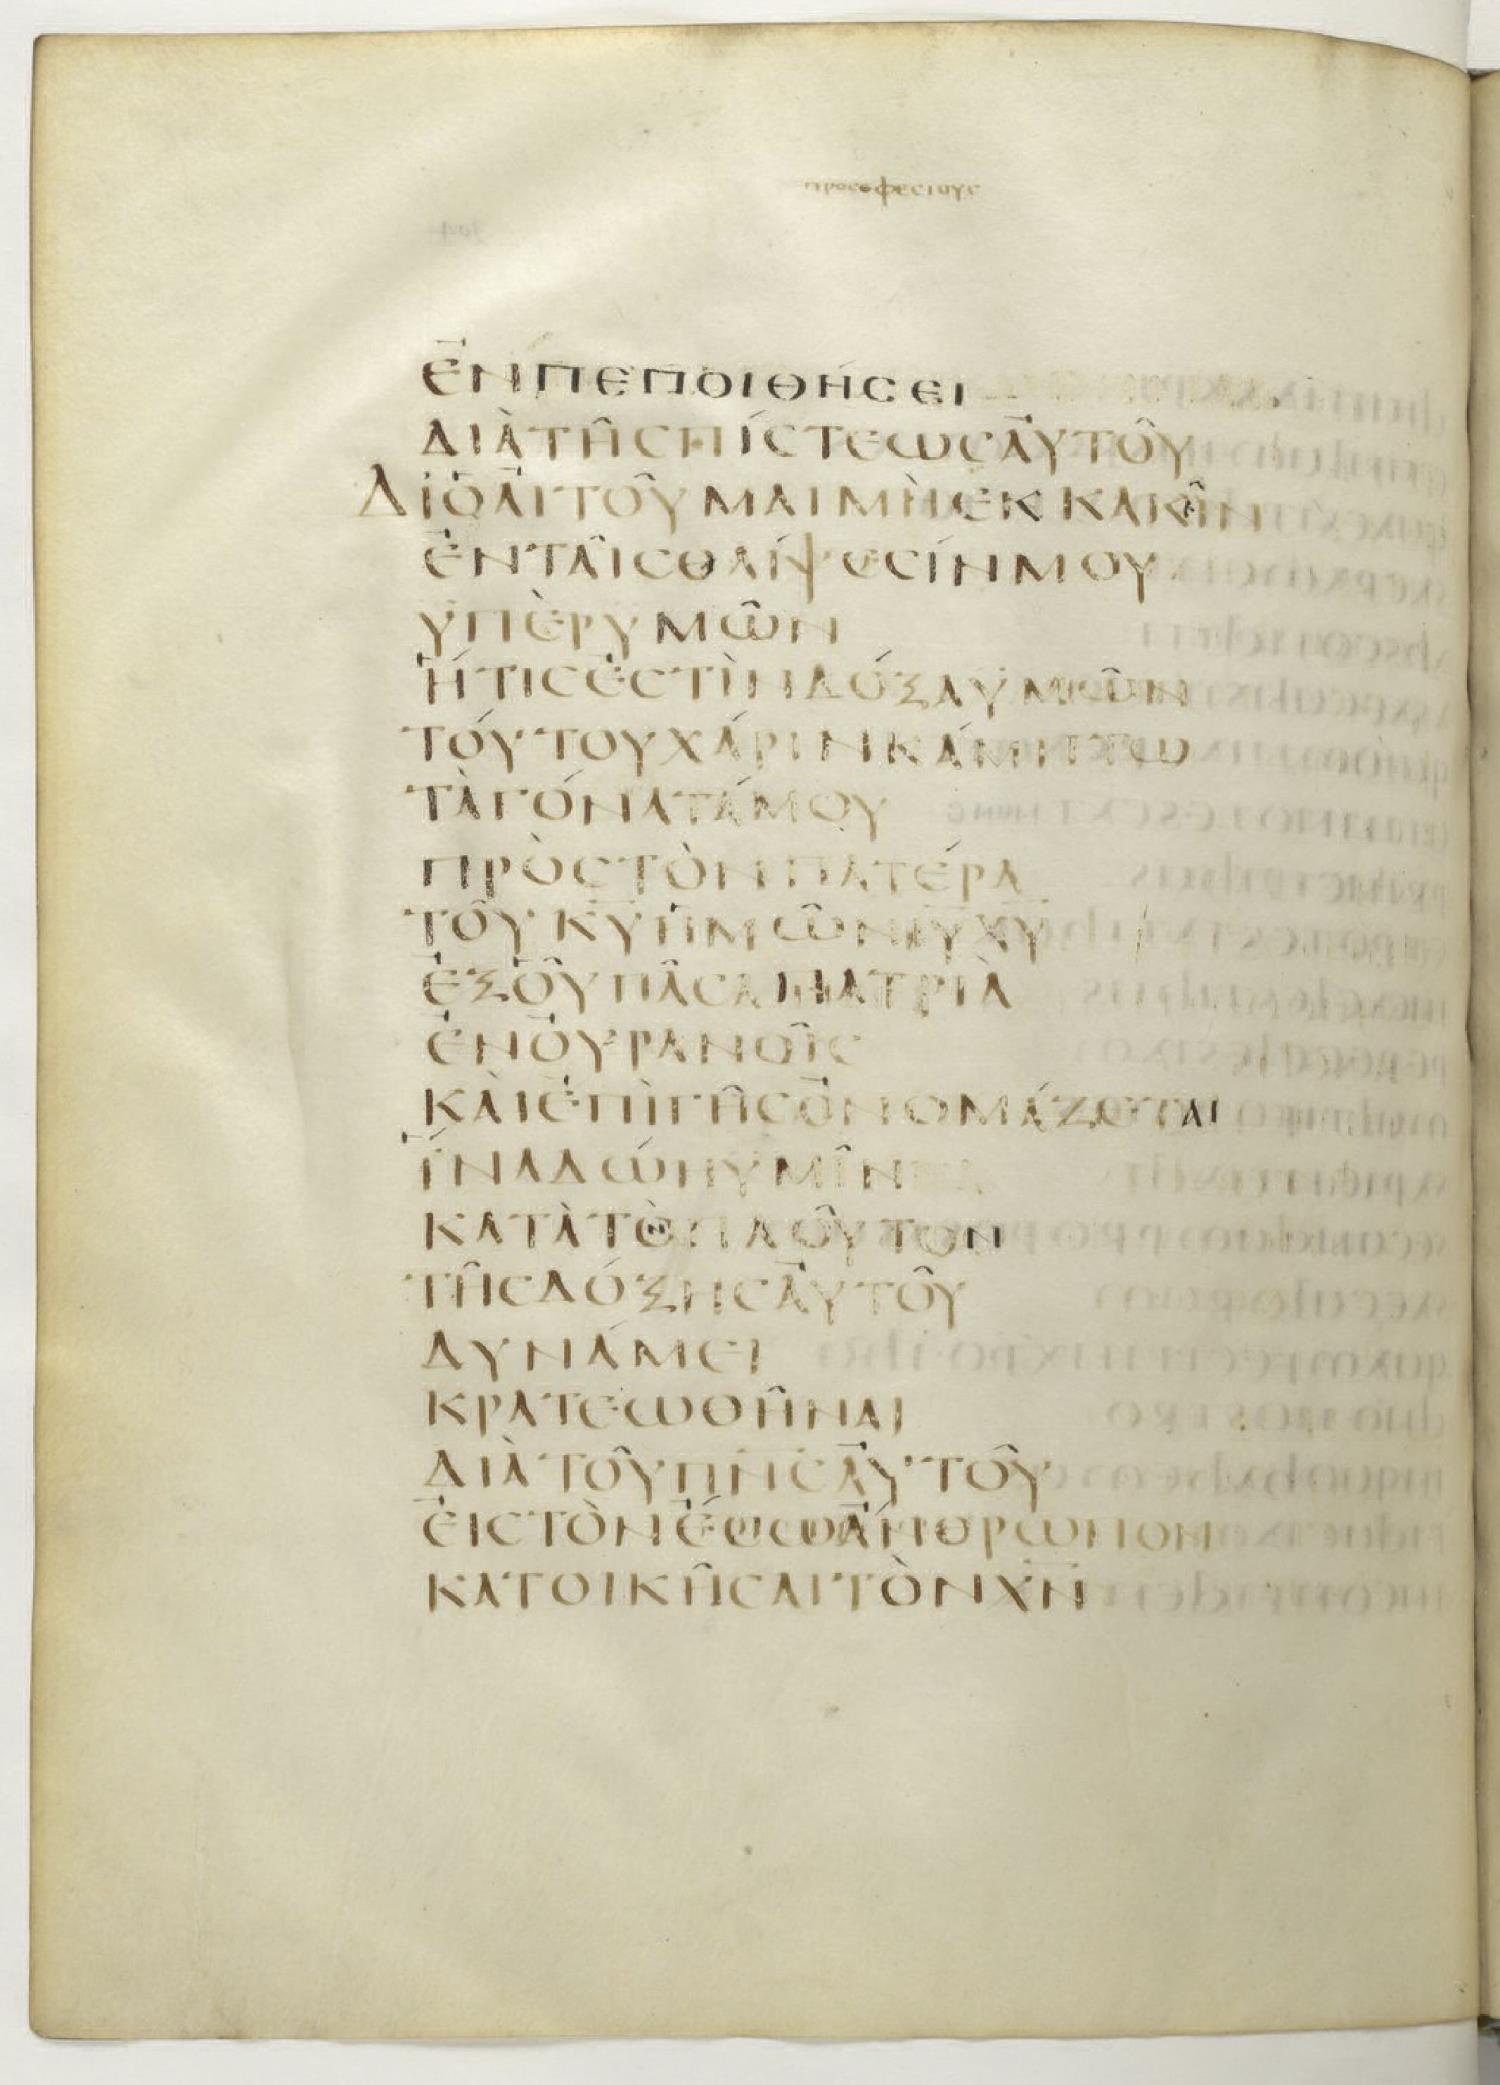 προσεφεσιους
ἘΝΠΕΠΟΙΘΉϹΕΙ
ΔΙᾺΤΗ͂ϹΠΊϹΤΕΩϹἈΥΤΟΥ͂
ΔΙΟἈΙΤΟΥ͂ΜΑΙΜῊΕΚΚΑΚΙ͂Ν
ἘΝΤΑΙ͂ϹΘΛΊΨΕϹΊΝΜΟΥ
ΥΠῈΡΥΜΩ͂Ν
ἭΤΙϹἘϹΤῚΝΔΌΞΑΥΜΩ͂Ν
ΤΌΥΤΟΥΧΆΡΙΝΚΆΜΠΤΩ
ΤᾺΓΌΝΑΤΆΜΟΥ
ΠΡῸϹΤῸΝΠΑΤΈΡΑ
ΤΟΥ͂Κ̅Υ̅Η͂ΜΩ͂ΝΙ̅Υ̅Χ̅Υ̅
ἘΞΟΥ͂ΠΑ͂ϹΑΠΑΤΡΙᾺ
ἘΝὈΥΡΑΝΟΙ͂Ϲ
ΚᾺΙἘΠῚΓΗ͂ϹὈΝΟΜΆΖΕΤΑΙ
ἽΝΑΔΏΗΥΜΙ͂Ν
ΚΑΤᾺΤῸΠΛΟΥ͂ΤΟΝ
ΤΗ͂ϹΔΌΞΗϹἈΥΤΟΥ͂
ΔΥΝΆΜΕΙ
ΚΡΑΤΕΩΘΗ͂ΝΑΙ
ΔΙᾺΤΟΥ͂Π̅Ν̅Ϲ̅ἈΥΤΟΥ͂
ἘΙϹΤῸΝἜϹΩἌΝΘΡΩΠΟΝ
ΚΑΤΟΙΚΗ͂ϹΑΙΤῸΝΧ̅Ν̅